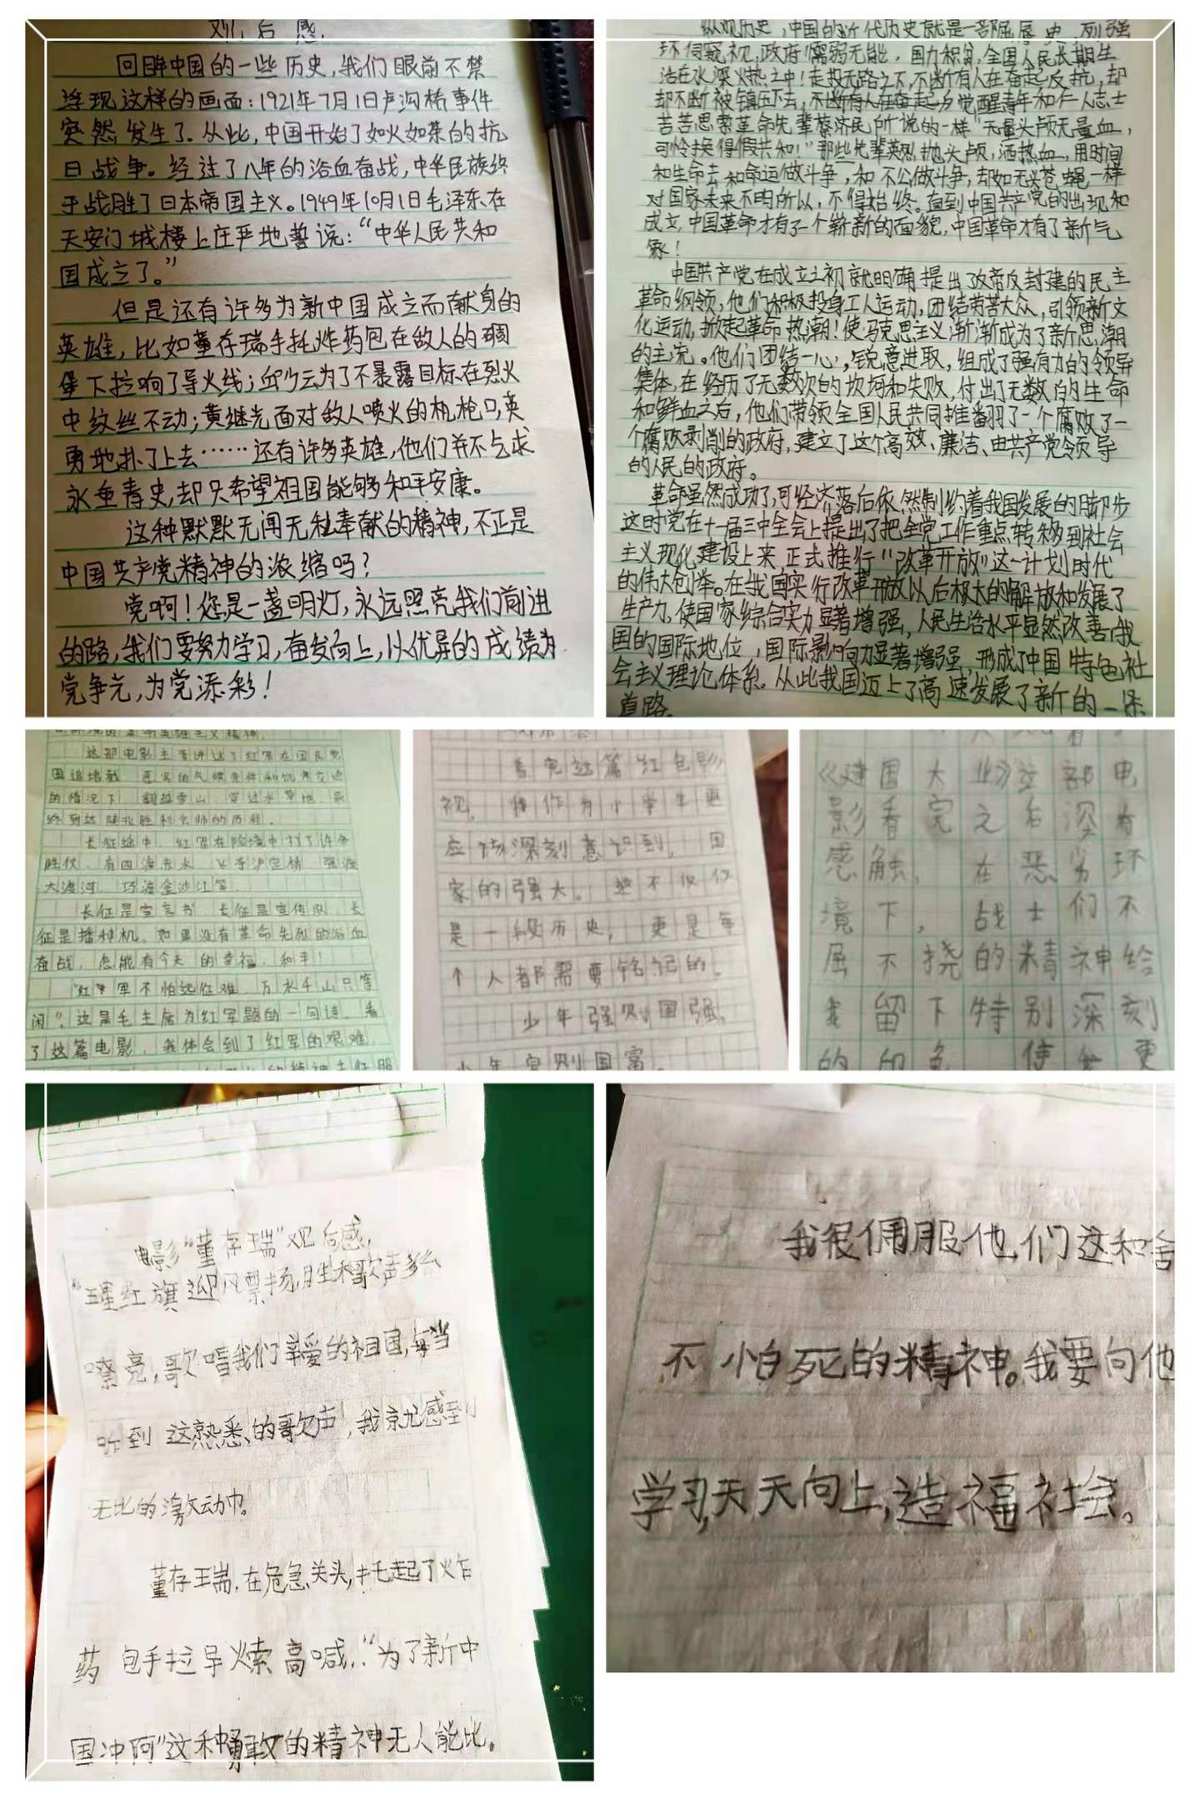 观后感
回眸中国的一些历史,我们眼前不禁
浮现这样的画面:1921年7月1日卢沟桥事件
突然发生了.从此,中国开始了如火如荼的抗
日战争。经过了八年的浴血奋战,中华民族终
于战胜了日本帝国主义。1949年10月1日毛泽东在
天安门城楼上庄严地誊说:“中华人民共和
国成立了。”
但是还有许多为新中国成立而献身的
英雄,比如董存瑞手托炸药包在敌人的碉
堡下拉响了导火线;邱少云为了不暴露目标在烈火
中纹丝不动;黄继光面对敌人喷火的机枪口,英
勇地扑了上去……还有许多英雄,他们并不乞求
永垂青史,却只希望祖国能够和平安康。
这种默默无闻无私奉献的精神,不正是
中国共产党精神的浓缩吗?
党啊!您是一盏明灯,永远照亮我们前进
的路,我们要努力学习,奋发向上,以优异的成绩为
党争光,为党添彩!
纵观历史,中国的近代历史就是一部屈辱史,列强
环伺窥视,政府懦弱无能,国力积弱,全国人民长期生
活在水深火热之中!走投无路之下,不断有人在奋起反抗,却
却不断被镇压下去,不断有人在奋起为觉醒青年和仁人志士
苦苦思索革命先辈蔡济民所说的一样“无量头颅无量血,
可怜换得假共和!”那些先辈英烈抛头颅,洒热血,用时间
和生命去和命运做斗争,和不公做斗争,却如无头苍蝇一样
对国家未来不明所以,不得始终。直到中国共产党的出现和
成立,中国革命才有了一个崭新的面貌,中国革命才有了新气
象!
中国共产党在成立之初就明确提出反帝反封建的民主
革命纲领,他们积极投身工人运动,团结劳苦大众,引领新文
化运动,掀起革命热潮!使马克思主义渐渐成为了新思潮
的主流。他们团结一心,锐意进取,组成了强有力的领导
集体,在经历了无数次的坎坷和失败,付出了无数的生命
和鲜血之后,他们带领全国人民共同推翻了一个腐败了一
个腐败剥削的政府,建立了这个高效、廉洁、由共产党领导
的人民的政府。
革命虽然成功了,可经济落后依然制约着我国发展的脚步
这时党在十一届三中全会上提出了把全党工作重点转移到社会
主义现化建设上来,正式推行“改革开放”这一计划时代
的伟大创举。在我国实行改革开放以后极大的解放和发展了
生产力,使国家综合实力显著增强,人民生活水平显然改善,我
国的国际地位,国际影响力显著增强,形成了中国特色社
会主义理论体系。从此我国迈上了高速发展了新的一条
道路。
这部电影主要讲述了红军在国民党
围追堵截、恶劣的气候条件和饥寒交迫
的情况下,翻越雪山,穿过水草地,最
终到达陕北胜利会师的历程。
长征途中,红军在险境中打了许多
胜仗,有四渡赤水、飞夺泸定桥、强渡
大渡河、巧渡金沙江等。
长征是宣言书,长征是宣传队,长
征是播种机。如果没有革命先烈的浴血
奋战,怎能有今天的幸福,和平!
“红军不怕远征难,万水千山只等
闲”,这是毛主席为红军题的一句诗。看
了这篇电影,我体会到了红军的艰难
看完这篇红色影
视,我作为小学生更
应该深刻意识到,国
家的强大。绝不仅仅
是一段历史,更是每
个人都需要铭记的。
少年强则国强,
少年富则国富。
《建国大业》这部电
影看完之后深有
感触,在恶劣环
境下,战士们不
屈不挠的精神给
我留下特别深刻
的印象,使我更
电影“董存瑞”观后感,
“五星红旗迎风票扬,胜利歌声多么
嘹亮,歌唱我们亲爱的祖国,每当
听到这熟悉的歌声,我就感到
无比的激动。
董存瑞,在危急关头,托起了炸
药包手拉导火索高喊:“为了新中
国冲阿”这种勇敢的精神无人能比。
我很佩服他们这种舍
不怕死的精神。我要向他
学习,天天向上,造福社会。